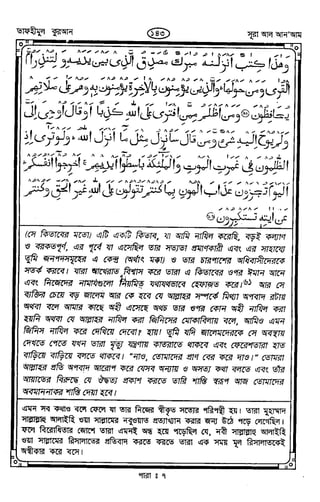 তাফহীমুল কুরআন
১৪৩
সূরা আল আন'আম
وَهٰذَا كِتٰبٌ اَنْزَلْنٰهُ مُبٰرَكٌ مُّصَدِّقُ الَّذِىْ بَيْنَ يَدَيْهِ وَلِتُنْذِرَ اُمَّ
الْقُرٰى وَمَنْ حَوْلَهَا ۚ وَالَّذِيْنَ يُؤْمِنُوْنَ بِالْاٰخِرَةِ يُؤْمِنُوْنَ بِهٖ وَهُمْ عَلٰى صَلَاتِهِمْ
يُحَافِظُوْنَ ۝ وَمَنْ اَظْلَمُ مِمَّنِ افْتَرٰى عَلَى اللهِ كَذِبًا اَوْ قَالَ اُوْحِىَ اِلَىَّ
وَلَمْ يُوْحَ اِلَيْهِ شَىْءٌ وَّمَنْ قَالَ سَاُنْزِلُ مِثْلَ مَا اَنْزَلَ اللهُ ۚ وَلَوْ تَرٰى اِذِ
الظّٰلِمُوْنَ فِىْ غَمَرٰتِ الْمَوْتِ وَالْمَلٰئِكَةُ بَاسِطُوْٓا اَيْدِيْهِمْ ۚ اَخْرِجُوْٓا اَنْفُسَكُمْ ۚ
اَلْيَوْمَ تُجْزَوْنَ عَذَابَ الْهُوْنِ بِمَا كُنْتُمْ تَقُوْلُوْنَ عَلَى اللهِ غَيْرَ الْحَقِّ وَكُنْتُمْ
عَنْ اٰيٰتِهٖ تَسْتَكْبِرُوْنَ ۝
(সে কিতাবের মতো) এটি একটি কিতাব, যা আমি নাযিল করেছি, বড়ই কল্যাণ
ও বরকতপূর্ণ, এর পূর্বে যা এসেছিল তার সত্যতা প্রমাণকারী এবং এর সাহায্যে
তুমি জনপদসমূহের এ কেন্দ্র (অর্থাৎ মক্কা) ও তার চারপাশের অধিবাসীদেরকে
সতর্ক করবে। যারা আখেরাত বিশ্বাস করে তারা এ কিতাবের ওপর ঈমান আনে
এবং নিজেদের নামাযগুলো নিয়মিত যথাযথভাবে হেফাজত করে। আর সে
ব্যক্তির চেয়ে বড় জালেম আর কে হবে যে আল্লাহর সম্পর্কে মিথ্যা অপবাদ রটায়
অথবা বলে আমার কাছে অহী এসেছে অথচ তার ওপর কোন অহী নাযিল করা
হয়নি অথবা যে আল্লাহর নাযিল করা জিনিসের মোকাবিলায় বলে, আমিও এমন
জিনিস নাযিল করে দেখিয়ে দেবো? হায়! তুমি যদি জালেমদেরকে সে অবস্থায়
দেখতে পেতে যখন তারা মৃত্যু যন্ত্রণায় কাতরাতে থাকবে এবং ফেরেশতারা হাত
বাড়িয়ে বাড়িয়ে বলতে থাকবেঃ "নাও, তোমাদের প্রাণ বের করে দাও।" তোমরা
আল্লাহর প্রতি অপবাদ আরোপ করে যেসব অন্যায় ও অসত্য কথা বলতে এবং তাঁর
আয়াতের বিরুদ্ধে যে ঔদ্ধত্য প্রকাশ করতে তারি শাস্তি স্বরূপ আজ তোমাদের
অবমাননাকর শাস্তি দেয়া হবে।
এমন সব কথাও বলে ফেলে যা তার নিজের স্বীকৃত সত্যের পরিপন্থী হয়। তারা মুহাম্মাদ
সাল্লাল্লাহু আলাইহি ওয়া সাল্লামের নবুওয়াত প্রত্যাখ্যান করার জন্য উঠে পড়ে লেগেছিল।
ফলে বিরোধিতার জোশে তারা এমনই অন্ধ হয়ে পড়েছিল যে, নবী সাল্লাল্লাহু আলাইহি
ওয়া সাল্লামের রিসালাতের প্রতিবাদ করতে করতে তারা এক সময় মূল রিসালাতকেই
অস্বীকার করে বসে।
পারা ঃ ৭